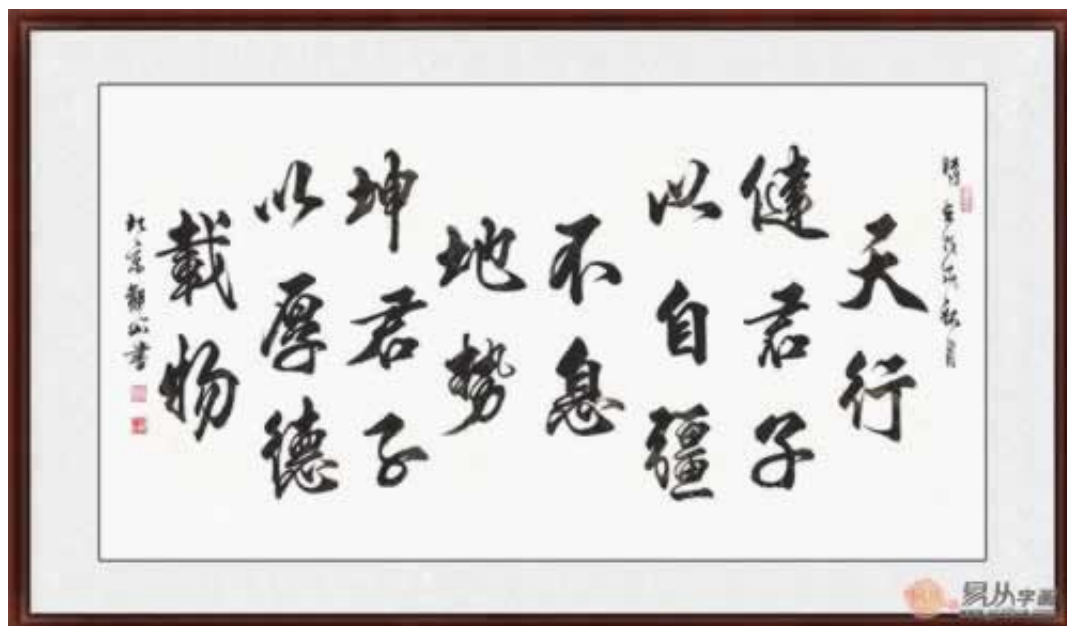 天行
健君子
以自疆
不息
地势
坤君子
以厚德
載物
书
易从字画